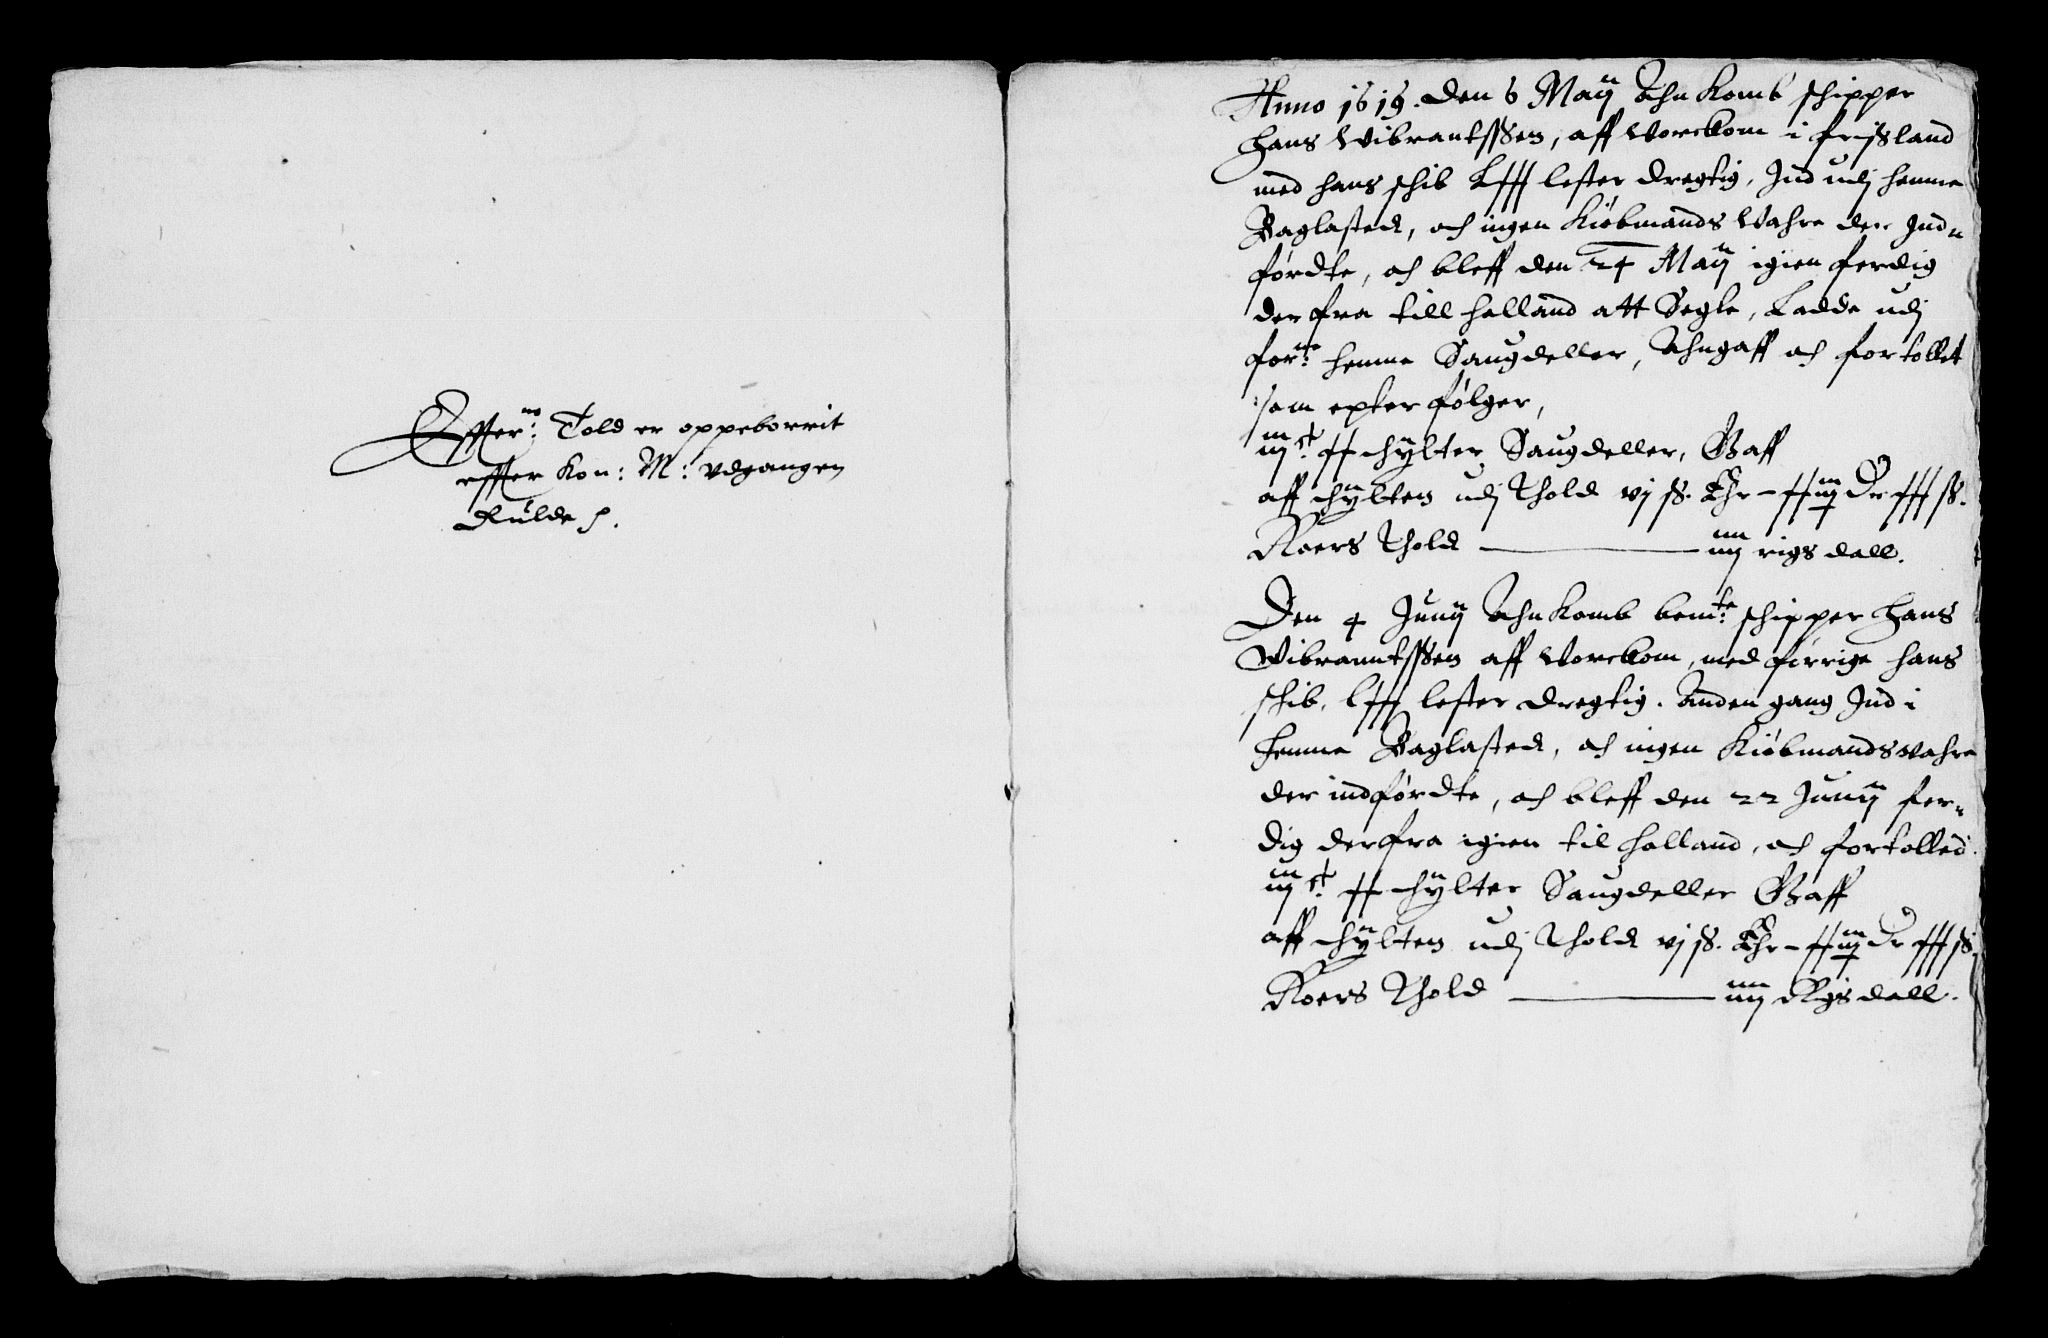 Efftern: Told er oppeborrit
effter Kon: M: vdgangen
Rulde /.
Anno 1619. den 6 Maij Ahnkomb schipper
Hans Wibrantssen, aff Worckom i frisland
med hans schib Lxxx lester dregtig, Ind udj henne
Baglasted, och ingen Kiøbmands Wahre der Ind
førdte, och bleff den 24 Maij igien ferdig
der fra till Holland att Segle, Ladde udj
forne: henne Saugdeller, Ahngaff och fortollet
som epter følger,
xx chÿlter Saugdeller, Gaff
aff chÿlten udj Thold vj ß. Er
Roers Thold rigs dall.
Den 4 Junij Ahnkomb bemte: schipper Hans
Wibranntssen aff Worckom, med förrige hans
schib, lxxx lester dregtig. Anden gang Ind i
henne Baglasted, och ingen Kiøbmandswahre
der indførdte, och bleff den 22 Junij fer
dig derfra igien til Holland, och fortolled
xx chÿlter Saugdeller Gaff
aff chÿlten udj Thold vj ß. Er
Roers Thold Rigs dall.